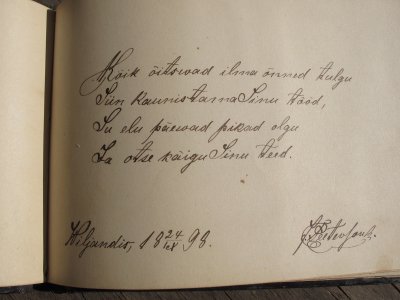 Kõik õitswad ilma õnned tulgu
Siin kaunistama Sinu tööd,
Su elu päewad pikad olgu
Ja otse käigu Sinu teed.
Wiljandis, 18 24/IX 98.